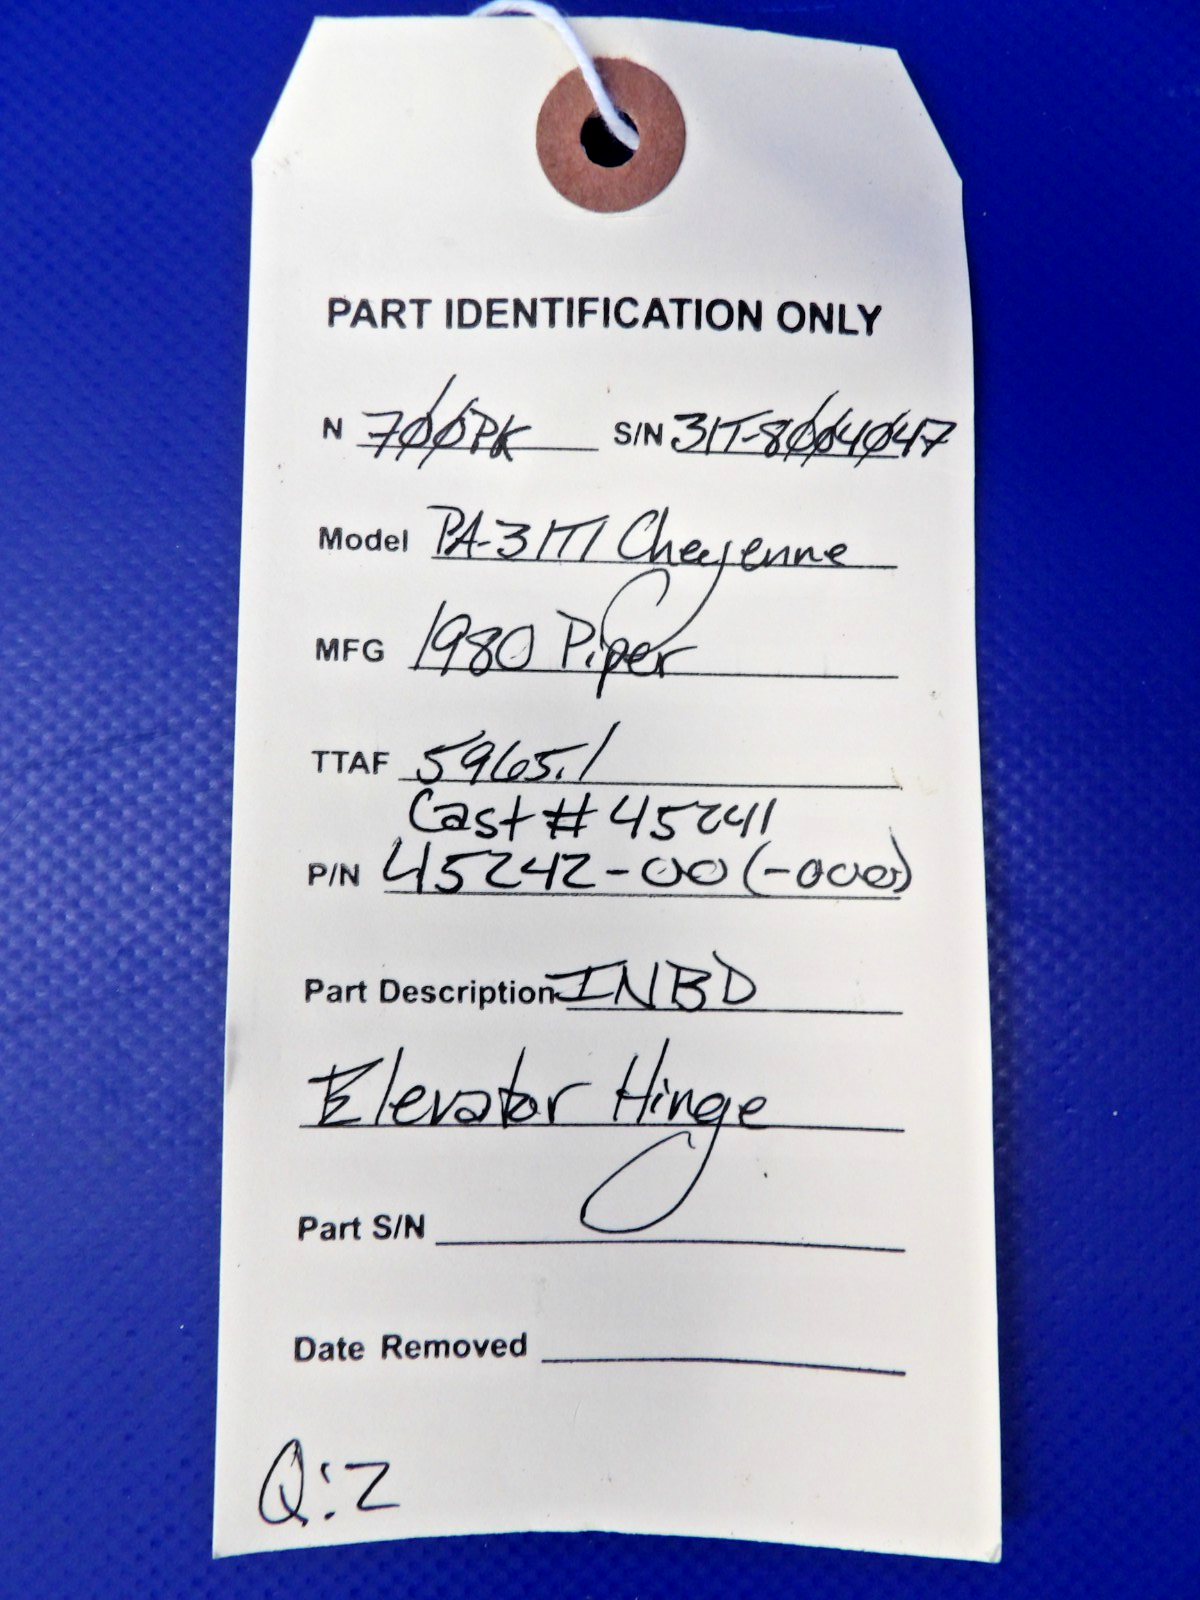 PART IDENTIFICATION ONLY
N 700PK S/N 31T-8004047
Model PA-31T1 Cheyenne
MFG 1980 Piper
TTAF 5965.1
Cast # 45241
P/N 45242-00 (-000)
Part Description INBD
Elevator Hinge
Part S/N
Date Removed
Q:2